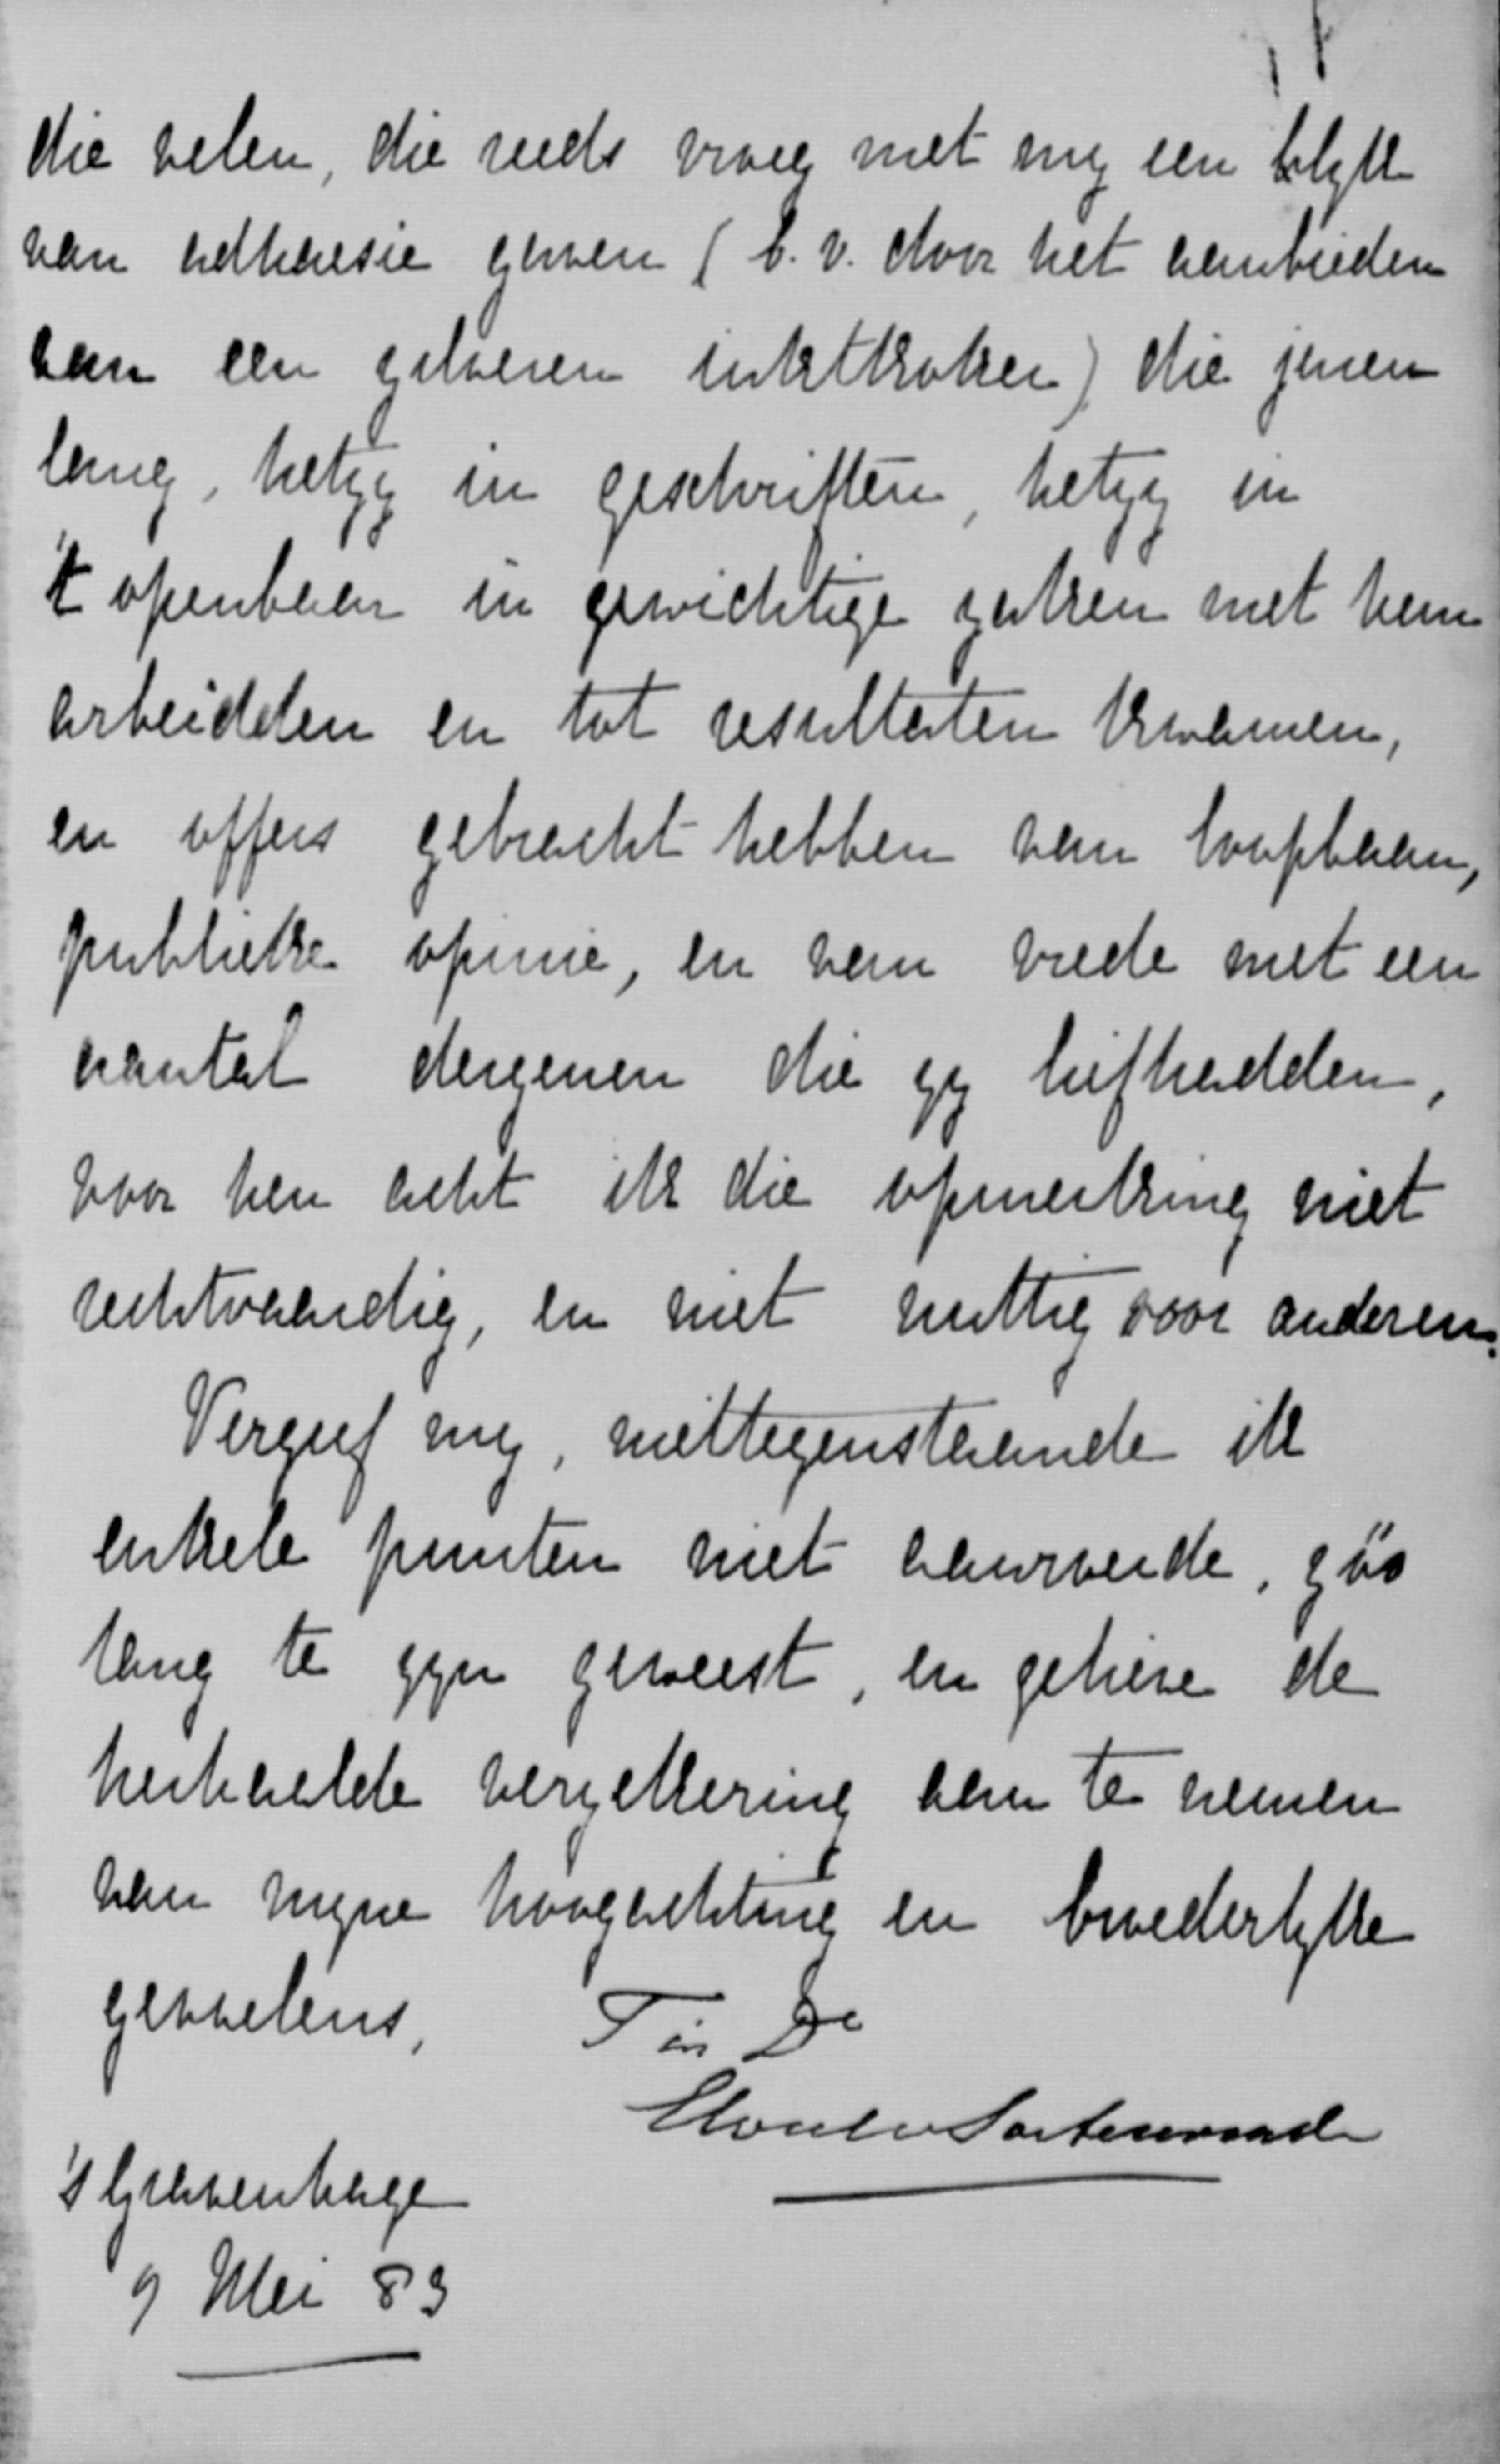 die velen, die reeds vroeg met mij een blijk
van adhaesie gaven (b.v. door het aanbieden
van een zilveren inktkoker) die jaren
lang, hetzij in geschriften, hetzij in
't openbaar in gewichtige zaken met hem
arbeidden en tot resultaten kwamen,
en offers gebracht hebben van loopbaan,
publieke opinie, en van vrede met een
aantal dergenen die zij liefhadden,
voor hen acht ik die opmerking niet
rechtvaardig, en niet nuttig voor anderen.
Vergeef mij, niettegenstaande ik
enkele punten niet aanroerde, zóó
lang te zijn geweest, en gelieve de
herhaalde verzekering aan te nemen
van mijne hoogachting en broederlijke
gevoelens,
's Gravenhage
9 Mei 83